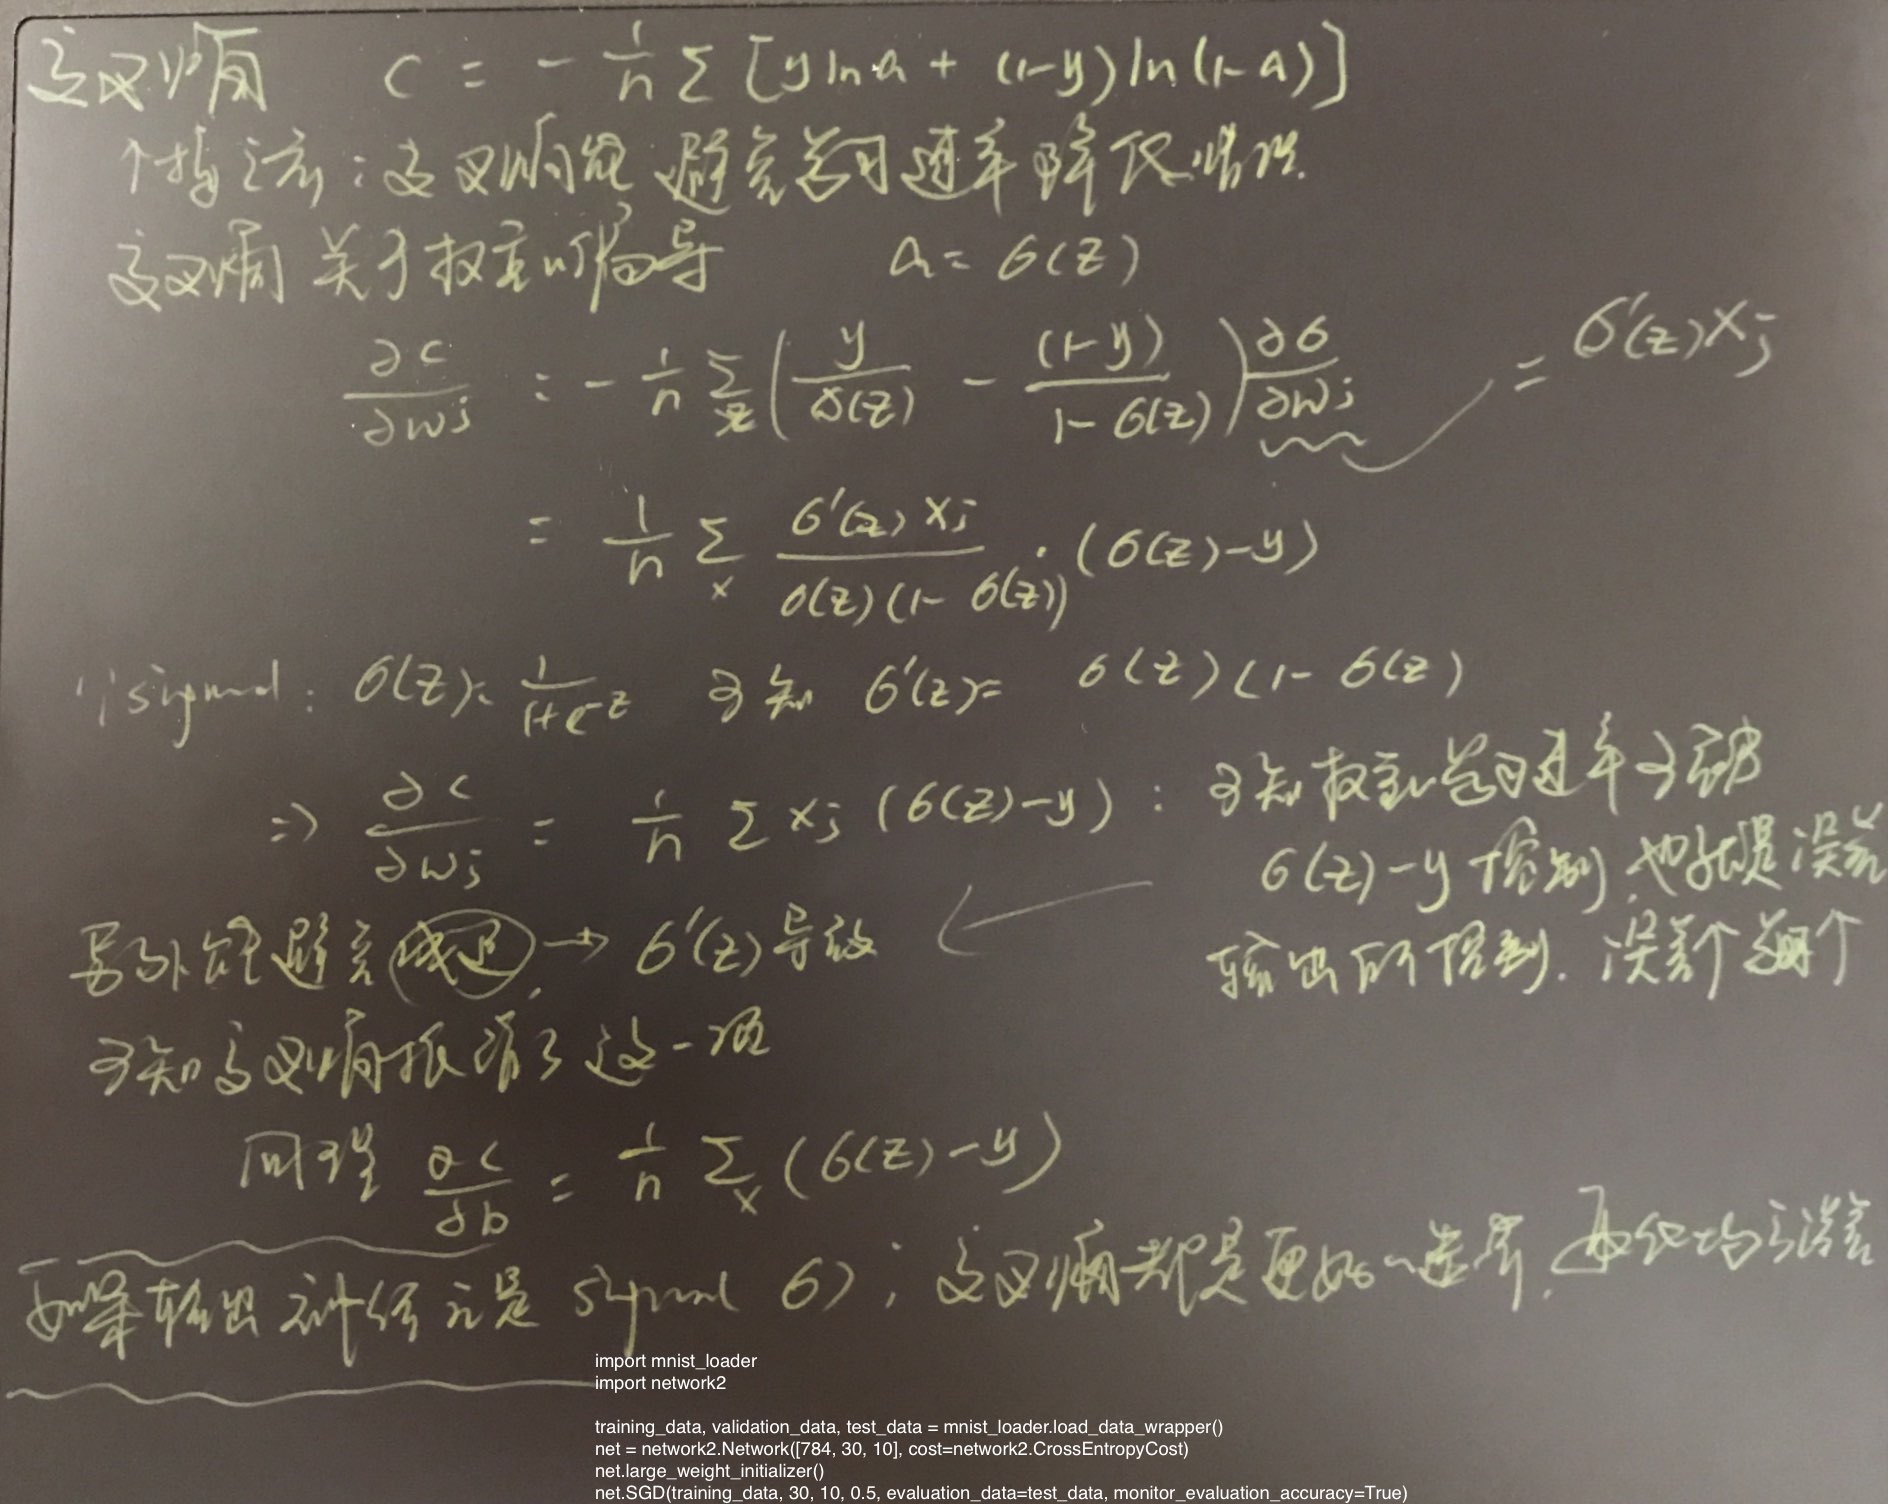 交叉熵 C = - 1/n Σ [y ln a + (1-y) ln (1-a)]
个指交叉: 交叉熵能避免学习速率降低情况.
交叉熵关于权重的偏导 a = σ(z)
∂C/∂wj = - 1/n Σx ( y/σ(z) - (1-y)/(1-σ(z)) ) ∂σ/∂wj = σ'(z)xj
= 1/n Σx σ'(z)xj / σ(z)(1-σ(z)) · (σ(z)-y)
sigmod: σ(z) = 1/(1+e^-z) 可知 σ'(z) = σ(z)(1-σ(z))
=> ∂C/∂wj = 1/n Σ xj (σ(z)-y) : 可知权重学习速率可被
σ(z)-y 控制, 也就是误差
输出所控制. 误差个 学习个
另外能避免 → σ'(z) 导致
可知交叉熵抵消了这一项
同理 ∂C/∂b = 1/n Σx (σ(z)-y)
如果输出神经元是 sigmod σ); 交叉熵都是更好的选择. 再比均方误差
import mnist_loader
import network2
training_data, validation_data, test_data = mnist_loader.load_data_wrapper()
net = network2.Network([784, 30, 10], cost=network2.CrossEntropyCost)
net.large_weight_initializer()
net.SGD(training_data, 30, 10, 0.5, evaluation_data=test_data, monitor_evaluation_accuracy=True)